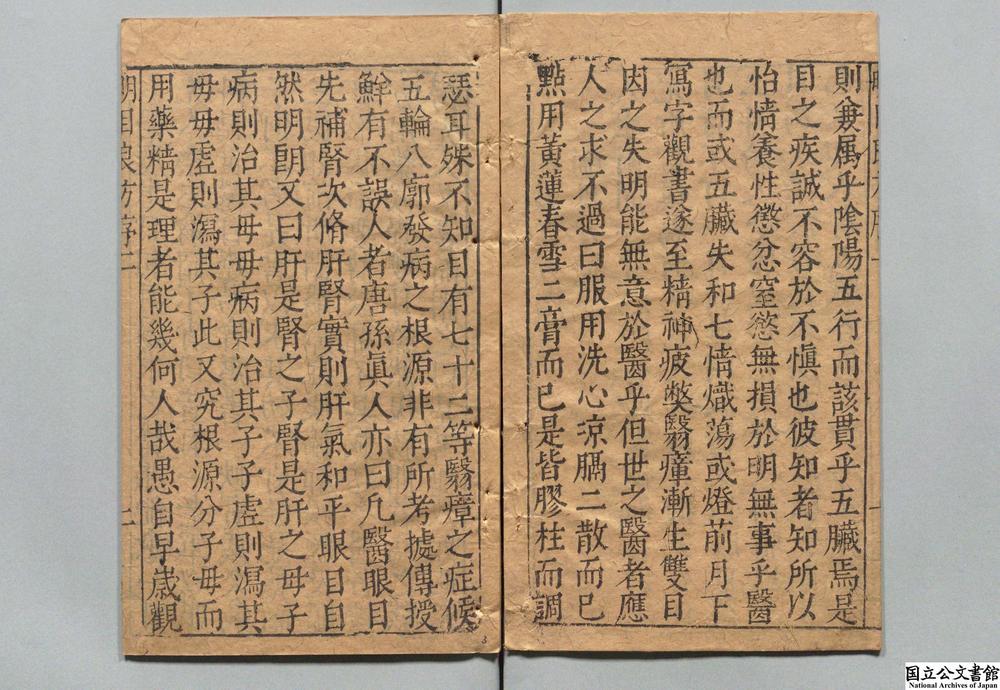 則兼属乎陰陽五行而該貫乎五臟焉是
目之疾誠不容於不慎也彼知者知所以
怡情養性懲忿窒慾無損於明無事乎醫
也而或五臟失和七情熾蕩或燈前月下
寫字觀書遂至精神疲獘翳瘴漸生雙目
因之失明能無意於醫乎但世之醫者應
人之求不過曰服用洗心凉膈二散而已
點用黃蓮春雪二膏而已是皆膠柱而調
瑟耳殊不知目有七十二等翳瘴之症候
五輪八廓發病之根源非有所考據傳授
鮮有不誤人者唐孫眞人亦曰凢醫眼目
先補腎次脩肝腎實則肝氣和平眼目自
然明朗又曰肝是腎之子腎是肝之母子
病則治其母母病則治其子子虛則瀉其
母母虛則瀉其子此又究根源分子母而
用藥精是理者能幾何人哉愚自早歲觀
明目良方序 二
国立公文書館
National Archives of Japan